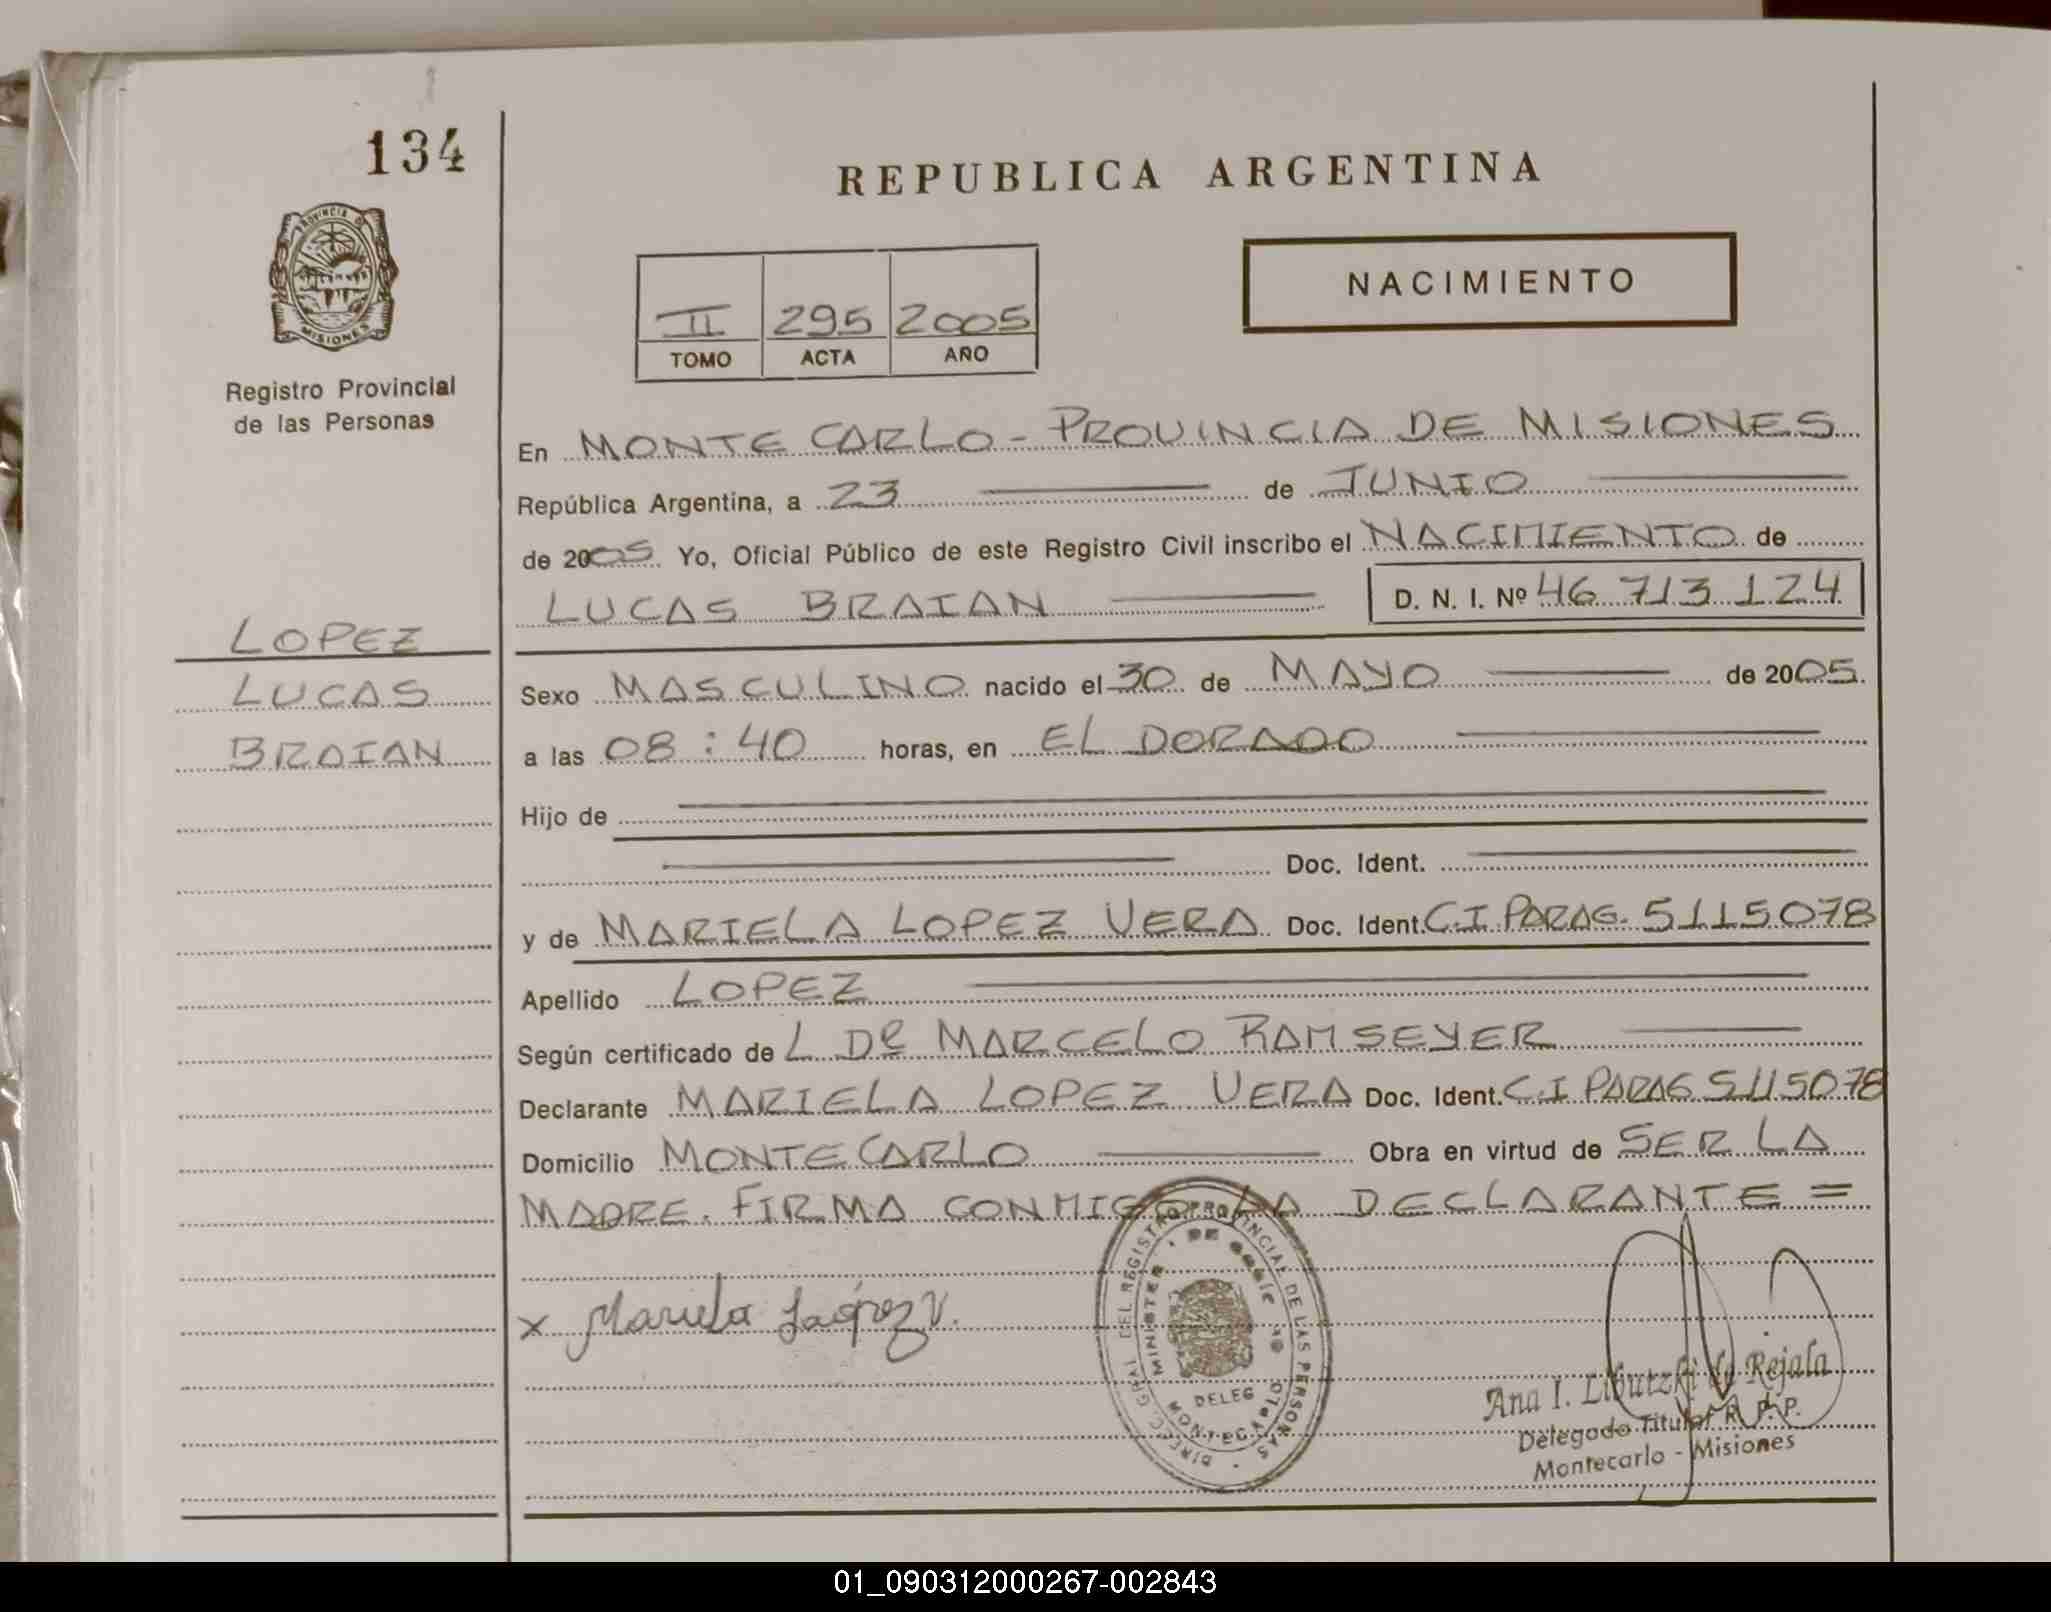 134
REPUBLICA ARGENTINA
PROVINCIA DE
MISIONES
NACIMIENTO
II 295 2005
TOMO ACTA AÑO
Registro Provincial
de las Personas
En MONTE CARLO - PROVINCIA DE MISIONES
República Argentina, a 23 de JUNIO
de 2005 Yo, Oficial Público de este Registro Civil inscribo el NACIMIENTO de
LUCAS BRAIAN D. N. I. Nº 46 713 124
LOPEZ
LUCAS
BRAIAN
Sexo MASCULINO nacido el 30 de MAYO de 2005.
a las 08:40 horas, en EL DORADO
Hijo de
Doc. Ident.
y de MARIELA LOPEZ VERA Doc. Ident. C.I. PARAG. 5115078
Apellido LOPEZ
Según certificado de L Dr MARCELO RAMSEYER
Declarante MARIELA LOPEZ VERA Doc. Ident. C.I PARAG 5115078
Domicilio MONTECARLO Obra en virtud de SER LA
MADRE. FIRMA CONMIGO LA DECLARANTE =
x Mariela López V.
DIREC. GRAL. DEL REGISTRO PROVINCIAL DE LAS PERSONAS
DELEG
MONTECARLO
Ana I. Libutzki de Rejala
Delegado Titular R. P. P.
Montecarlo - Misiones
01_090312000267-002843